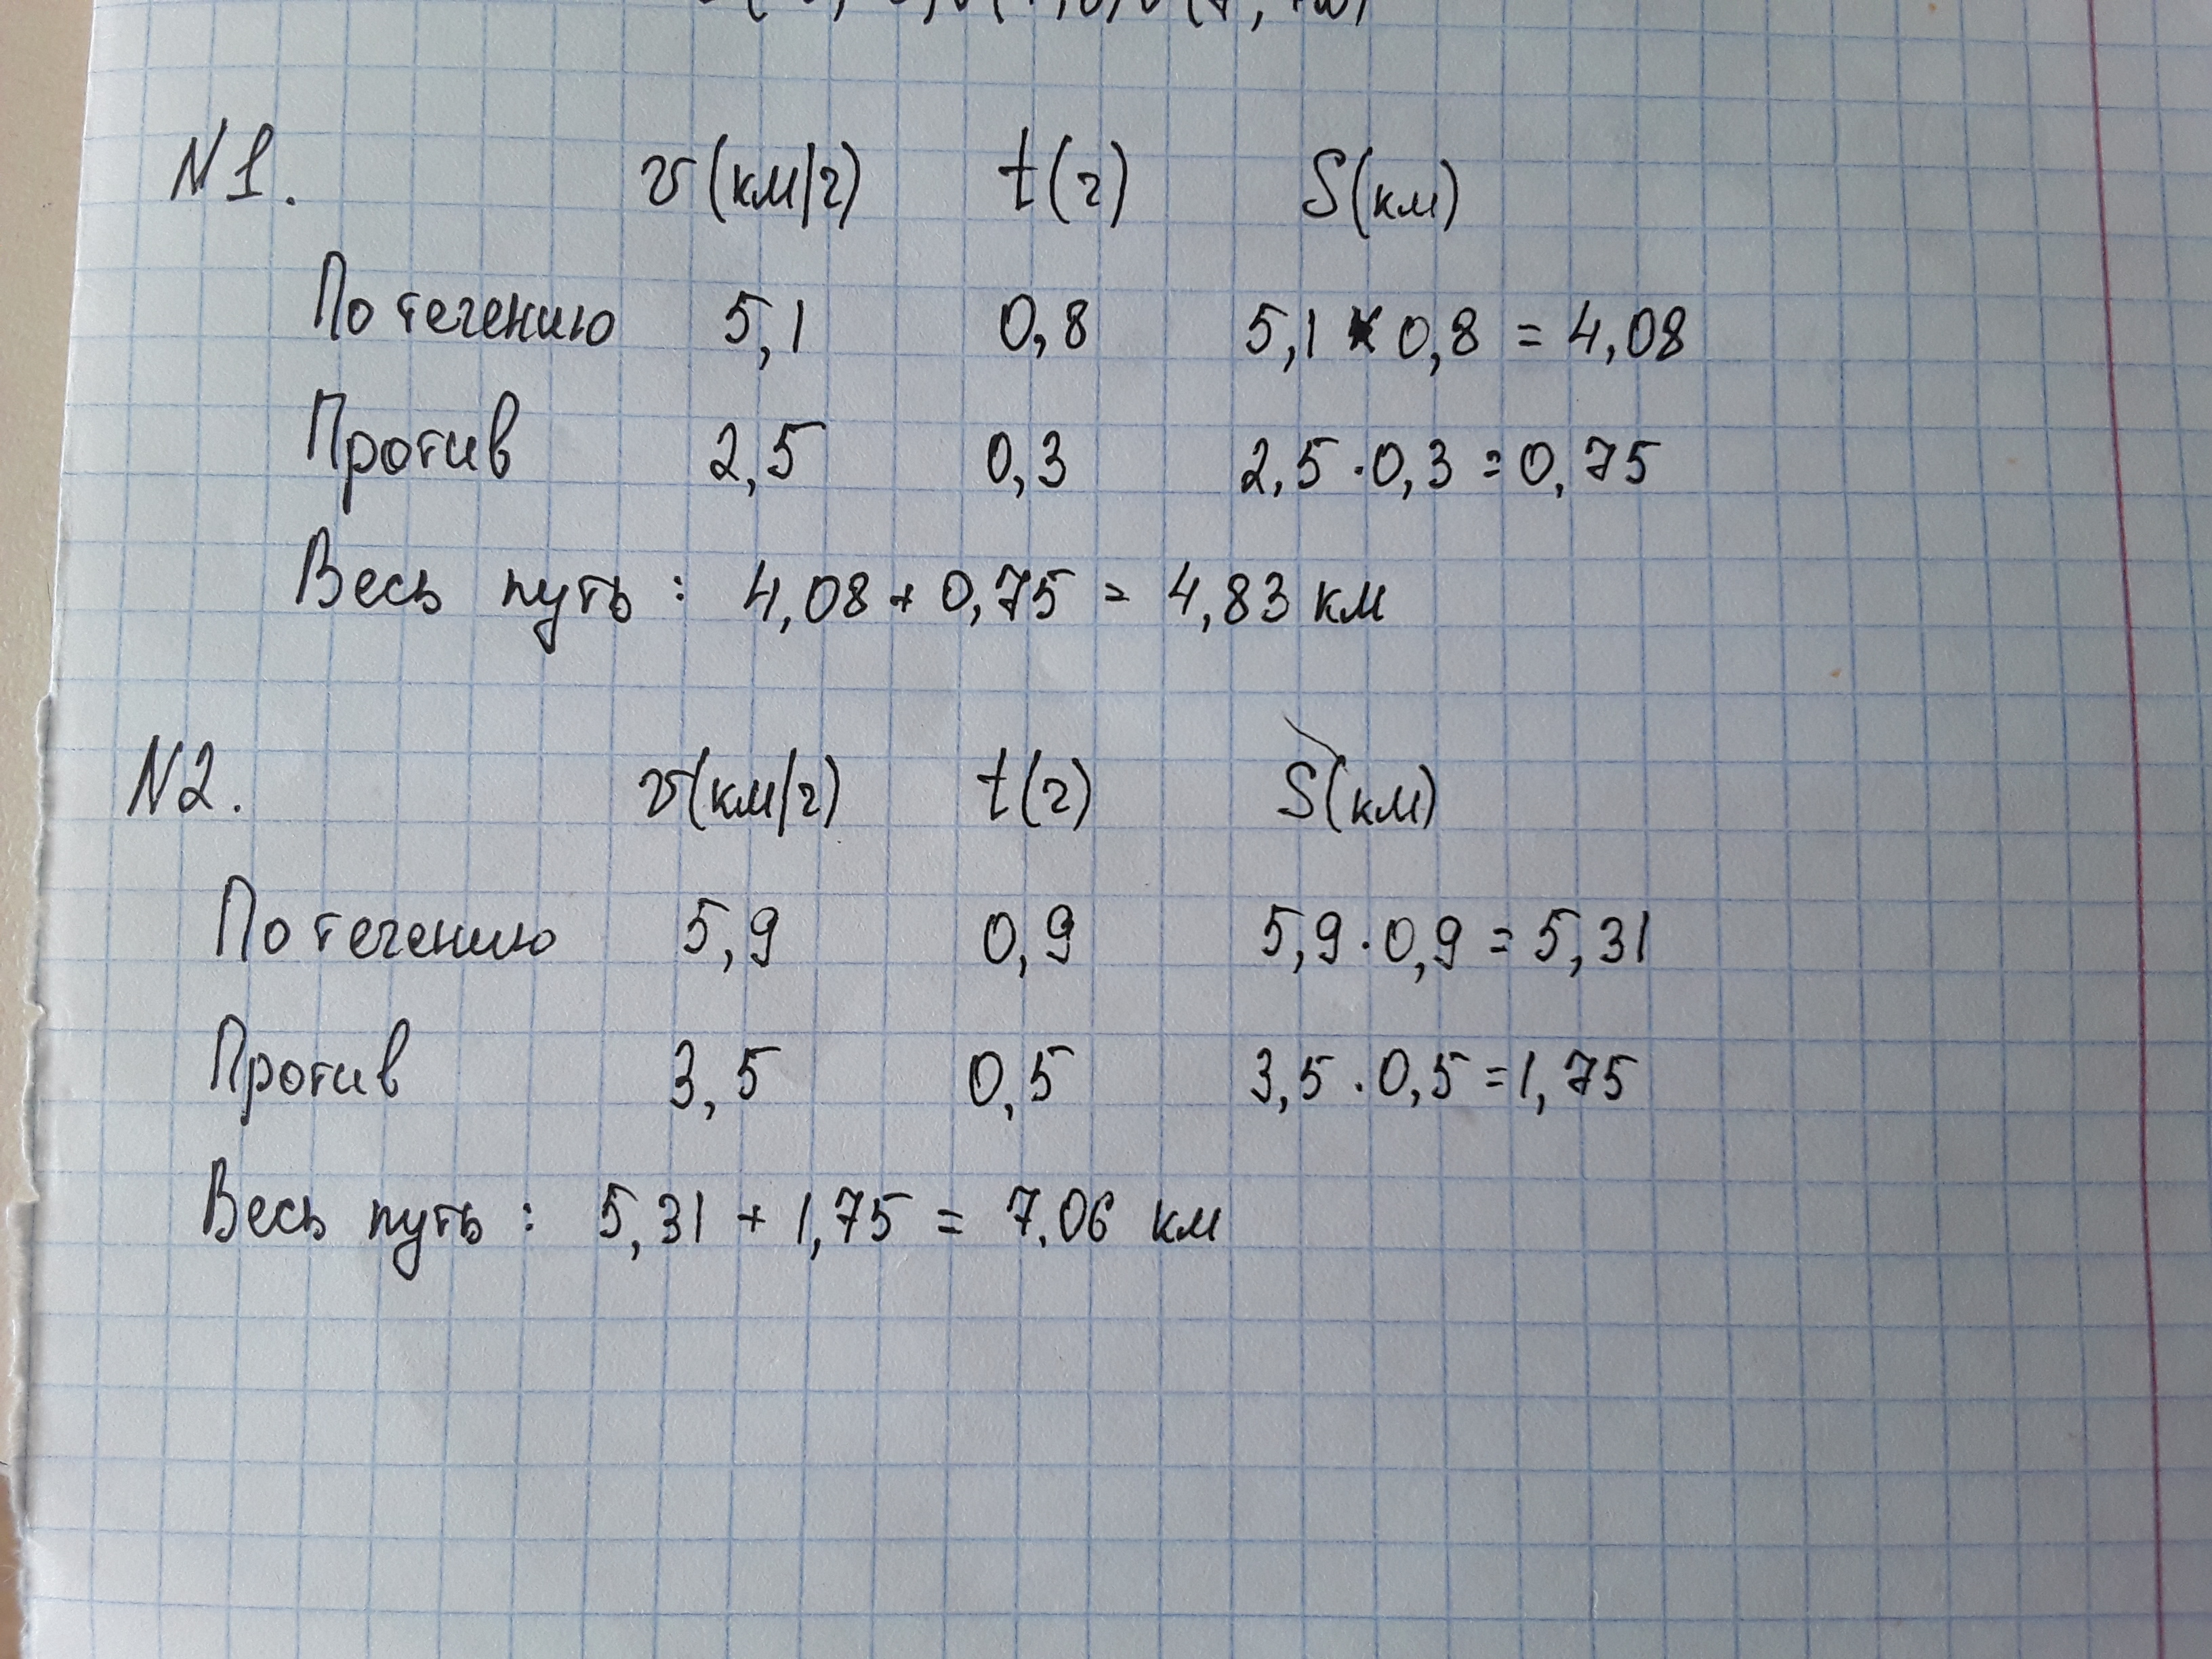 N1. v(км/ч) t(ч) S(км)
По течению 5,1 0,8 5,1 × 0,8 = 4,08
Против 2,5 0,3 2,5 · 0,3 = 0,75
Весь путь : 4,08 + 0,75 = 4,83 км
N2. v(км/ч) t(ч) S(км)
По течению 5,9 0,9 5,9 · 0,9 = 5,31
Против 3,5 0,5 3,5 · 0,5 = 1,75
Весь путь : 5,31 + 1,75 = 7.06 км